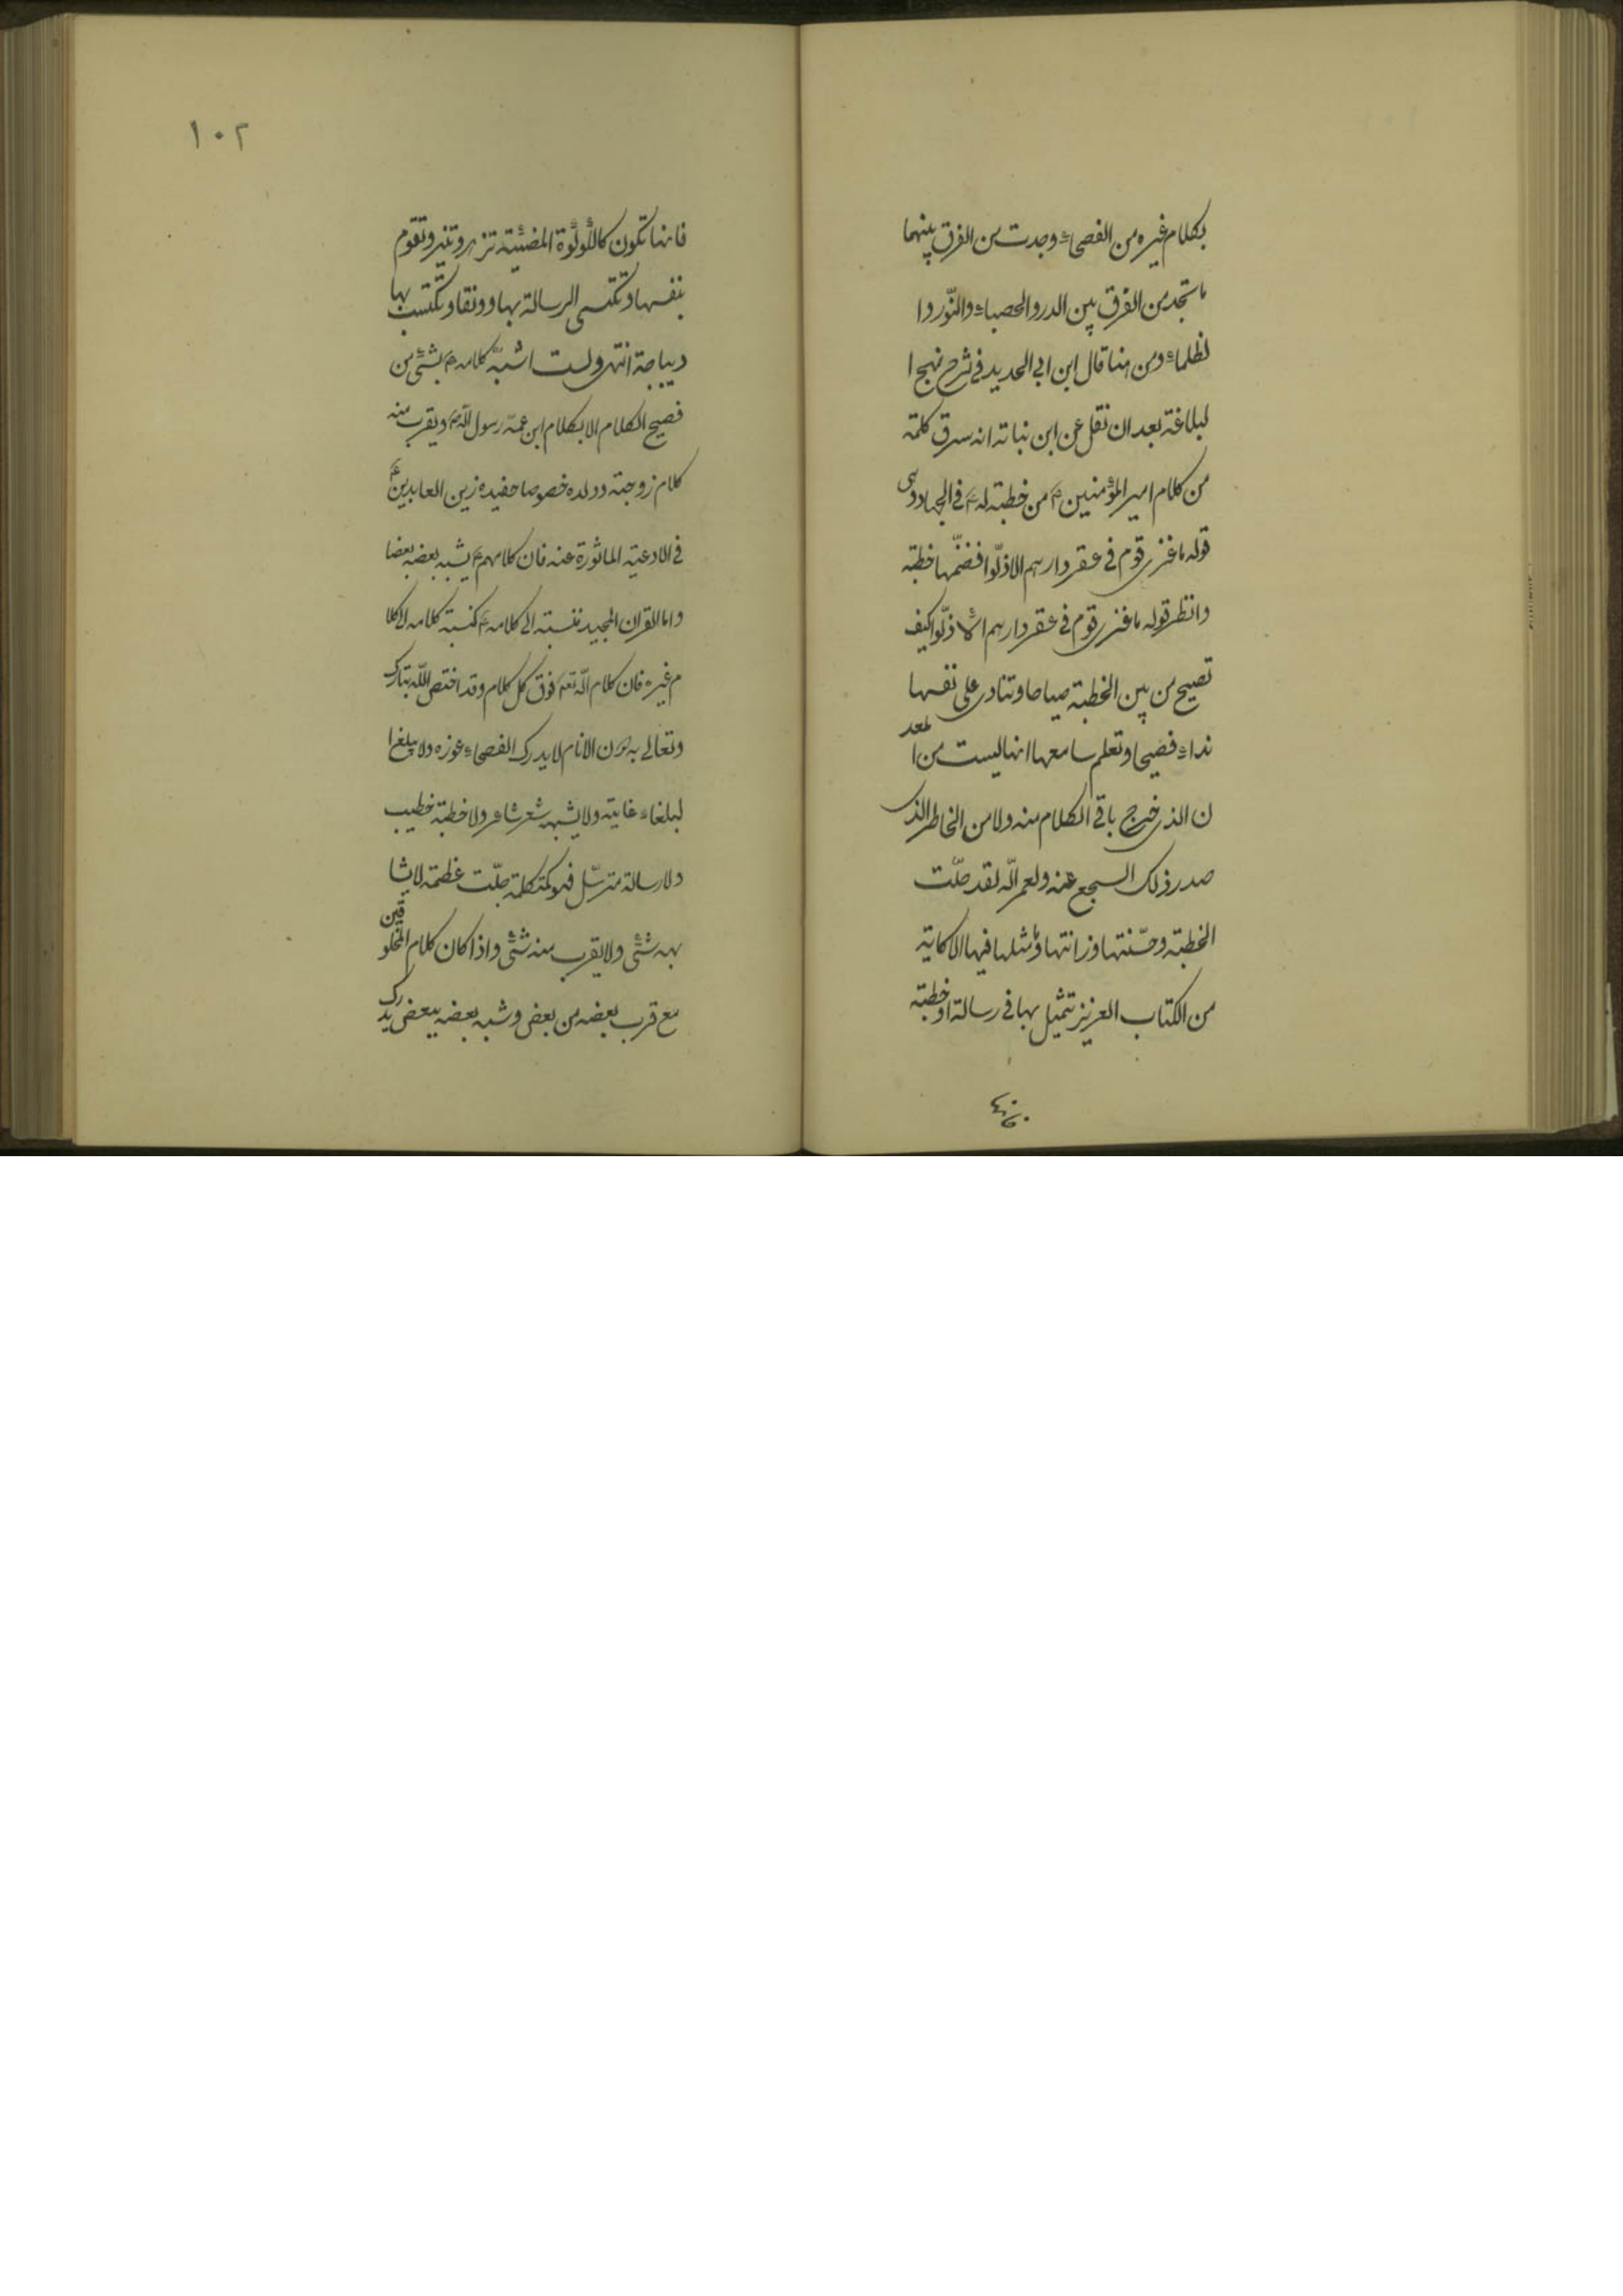 بكلام غيره من الفصحاء وجدت من الفرق بينهما
ما تجد من الفرق بين الدر والحصباء والنّور وا
لظلماء ومن هنا قال ابن ابى الحديد فى شرح نهج ا
لبلاغة بعد ان نقل عن ابن نباته انه سرق كلمة
من كلام امير المؤمنين ع من خطبة له ع فى الجهاد وهى
قوله ما غزى قوم فى عقر دارهم الا ذلّوا فضمّها خطبة
وانظر قوله ما غزى قوم فى عقر دارهم الا ذلّوا كيف
تصيح من بين الخطبة صياحا وتنادى على نفسها
نداء فصيحا وتعلم سامعها انها ليست من المعد
ن الذى خرج باقى الكلام منه ولا من الخاطر الذى
صدر ذلك السجع عنه ولعمر اللّه لقد جلّت
الخطبة وحسّنتها وزانتها وما مثلها فيها الا كاية
من الكتاب العزيز تتمثل بها فى رسالة او خطبة
فانها
١٠٢
فانها تكون كاللّؤلؤة المضيئة تزهر وتنير وتقوم
بنفسها وتكتسى الرسالة بها رونقا وتكتسب بها
ديباجة انتهى ولست اشبّه كلامه ع بشئ من
فصيح الكلام الا بكلام ابن عمّه رسول اللّه ص ويقرب منه
كلام زوجته وولده خصوصا حفيده زين العابدين ع
فى الادعية الماثورة عنه فان كلامهم ع يشبه بعضه بعضا
واما القران المجيد فنسبته الى كلامه ع كنسبة كلامه الى كلا
م غيره فان كلام اللّه تعم فوق كل كلام وقد اختص اللّه تبارك
وتعالى به دون الانام لا يدرك الفصحاء غوره ولا يبلغ ا
لبلغاء غايته ولا يشبهه شعر شاعر ولا خطبة خطيب
ولا رسالة مترسّل فهو كمتكلمه جلّت عظمته لا يشا
بهه شئ ولا يقرب منه شئ واذا كان كلام المخلوقين
مع قرب بعضه من بعض وشبه بعضه ببعض يدرك